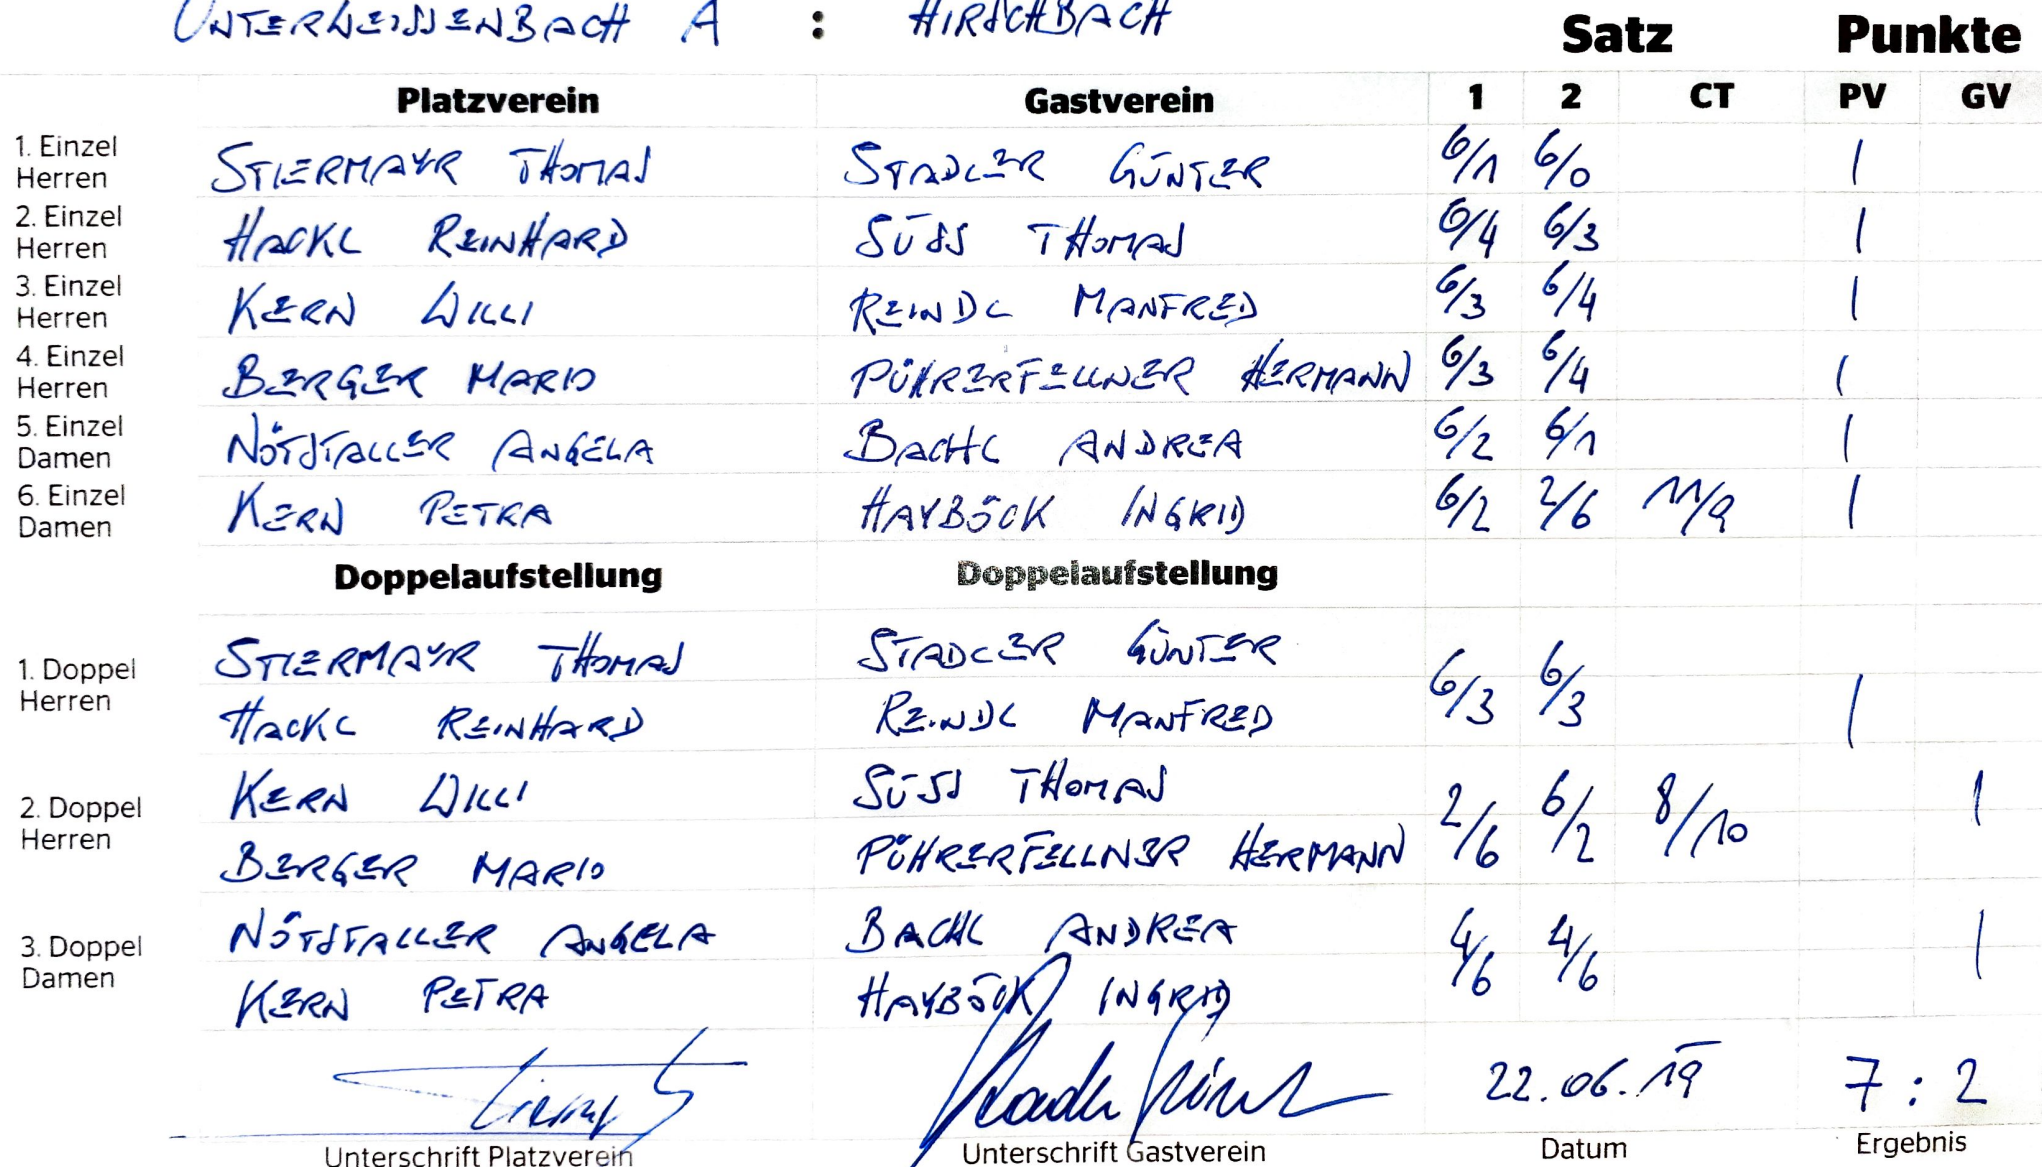 UNTERWEISSENBACH A : HIRSCHBACH
Satz Punkte
Platzverein Gastverein 1 2 CT PV GV
1. Einzel Herren STIERMAYR THOMAS STADLER GÜNTER 6/1 6/0 1
2. Einzel Herren HACKL REINHARD SÜSS THOMAS 6/4 6/3 1
3. Einzel Herren KERN WILLI REINDL MANFRED 6/3 6/4 1
4. Einzel Herren BERGER MARIO PÜHRERFELLNER HERMANN 6/3 6/4 1
5. Einzel Damen NÖTSTALLER ANGELA BACHL ANDREA 6/2 6/1 1
6. Einzel Damen KERN PETRA HAYBÖCK INGRID 6/2 2/6 11/9 1
Doppelaufstellung Doppelaufstellung
1. Doppel Herren STIERMAYR THOMAS STADLER GÜNTER 6/3 6/3 1
HACKL REINHARD REINDL MANFRED
2. Doppel Herren KERN WILLI SÜSS THOMAS 2/6 6/2 8/10 1
BERGER MARIO PÜHRERFELLNER HERMANN
3. Doppel Damen NÖTSTALLER ANGELA BACHL ANDREA 4/6 4/6 1
KERN PETRA HAYBÖCK INGRID
22.06.19 7 : 2
Unterschrift Platzverein Unterschrift Gastverein Datum Ergebnis